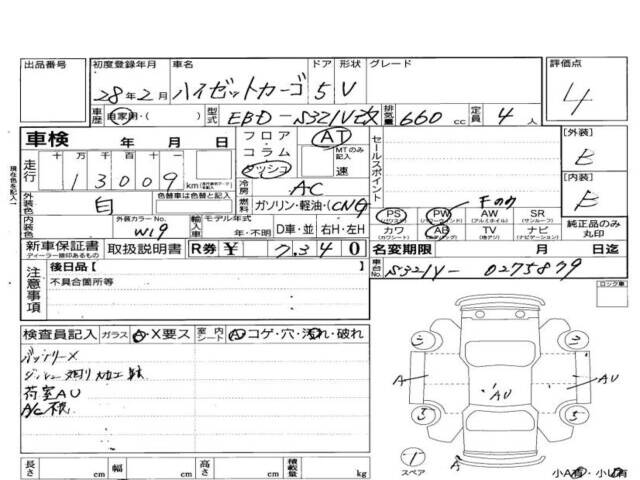 出品番号 初度登録年月 車名 ドア 形状 グレード 評価点
28年2月 ハイゼットカーゴ 5 V 4
車歴 自家用・( ) 型式 EBD-S321V改 排気量 660 cc 定員 4 人
車検 年 月 日 フロア・コラム・ダッシュ AT MTのみ記入 速 セールスポイント 【外装】 B
走行 十 万 千 百 十 一 13009 km 【内装】 B
現在色を記入
外装色 白 色替車は色替と記入 冷房 AC
燃料 ガソリン・軽油・(CNG Fのみ
PS AW SR
(アルミホイル) (サンルーフ)
PW
内装色 外装カラーNo. W19 輸入車 モデル年式 年・不明 D車・並 右H・左H
カワ (カワシート) AB (エアバッグ) TV (地デジ) ナビ (ナビゲーション) 純正品のみ丸印
新車保証書 ディーラー捺印あるもの 取扱説明書 R券 ¥ 7,340 名変期限 月 日迄
注意事項 後日品【 】 車台No. S321V-0275879
不具合箇所等 ロック車
検査員記入 ガラス A・X要ス 室内シート A コゲ・穴・汚れ・破れ
バッテリーX
荷室AU
A/C不良
3 3
A AU AU
3 5
1 スペア A
長さ cm 幅 cm 高さ cm 積載量 kg
小A有・小U有